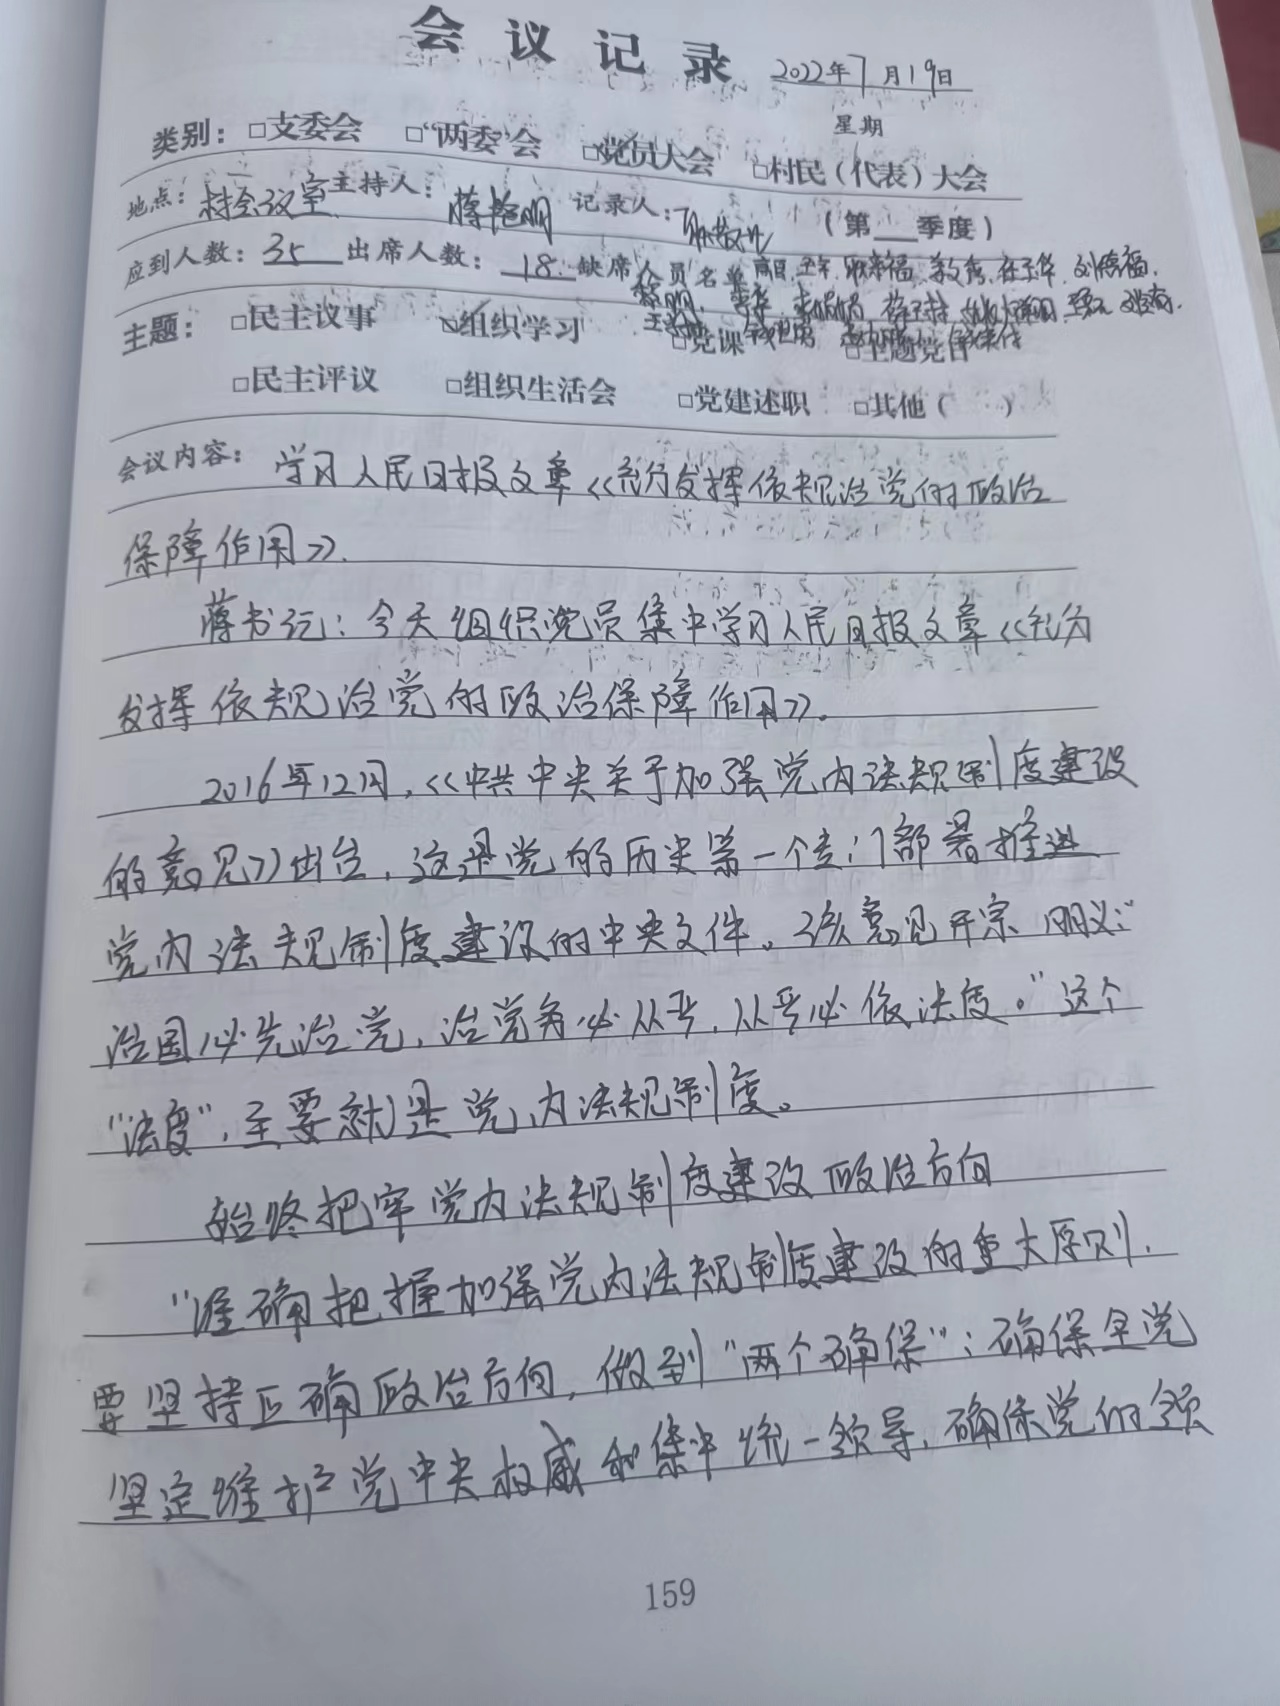 会议记录
2022年7月19日
星期
类别：□支委会 □“两委”会 □党员大会 □村民（代表）大会
地点：村会议室 主持人：蒋艳明 记录人： （第 季度）
应到人数：35 出席人数：18 缺席人员名单
主题：□民主议事 □组织学习 □党课 □主题党日
□民主评议 □组织生活会 □党建述职 □其他（ ）
会议内容：学习人民日报文章《充分发挥依规治党的政治
保障作用》.
蒋书记：今天组织党员集中学习人民日报文章《充分
发挥依规治党的政治保障作用》。
2016年12月,《中共中央关于加强党内法规制度建设
的意见》出台，这是党的历史第一个专门部署推进
党内法规制度建设的中央文件。该意见开宗明义:“
治国必先治党，治党务必从严，从严必依法度。”这个
“法度”，主要就是党内法规制度。
始终把牢党内法规制度建设政治方向
“准确把握加强党内法规制度建设的重大原则，
要坚持正确政治方向，做到“两个确保”：确保全党
坚定维护党中央权威和集中统一领导，确保党的领
159